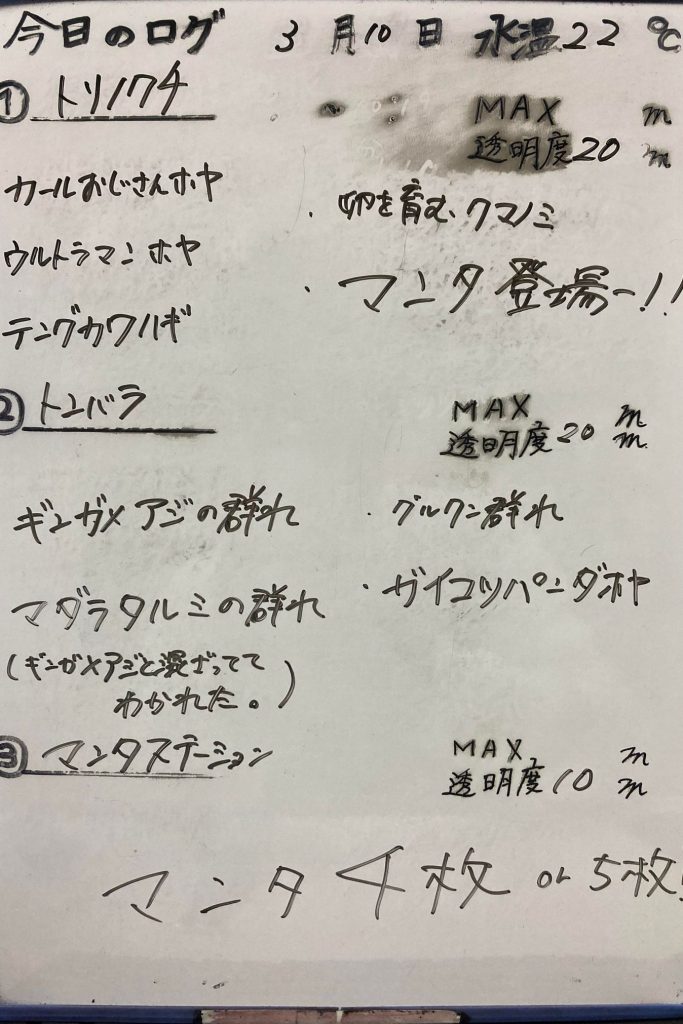 今日のログ 3月10日 水温22℃
① トリノクチ
MAX m
透明度20m
カールおじさんホヤ
・卵を育む、クマノミ
ウルトラマンホヤ
・マンタ登場ー!!
テングカワハギ
② トンバラ
MAX m
透明度20m
ギンガメアジの群れ
・グルクン群れ
マダラタルミの群れ
・ガイコツパンダホヤ
(ギンガメアジと混ざってて
わかれた。)
③ マンタステーション
MAX m
透明度10m
マンタ4枚or5枚!